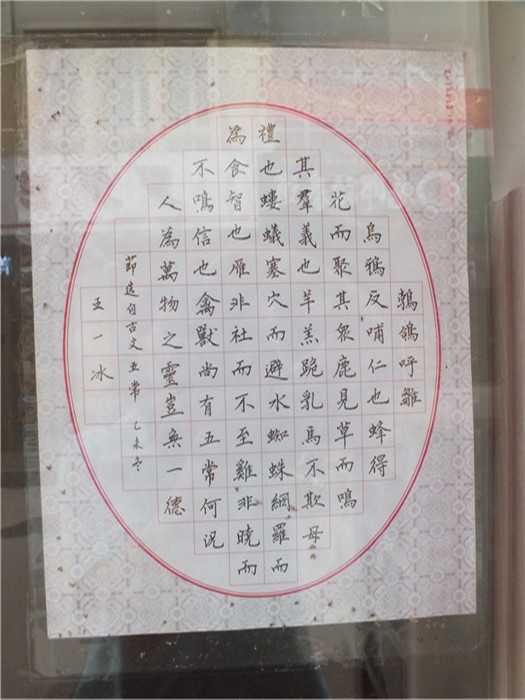 鵓鴿呼雛
烏鴉反哺仁也蜂得
花而聚其衆鹿見草而鳴
其羣義也羊羔跪乳馬不欺母
禮也螻蟻塞穴而避水蜘蛛網羅而
為食智也雁非社而不至雞非曉而
不鳴信也禽獸尚有五常何況
人為萬物之靈豈無一德
節选自古文五常 乙未冬
王一冰